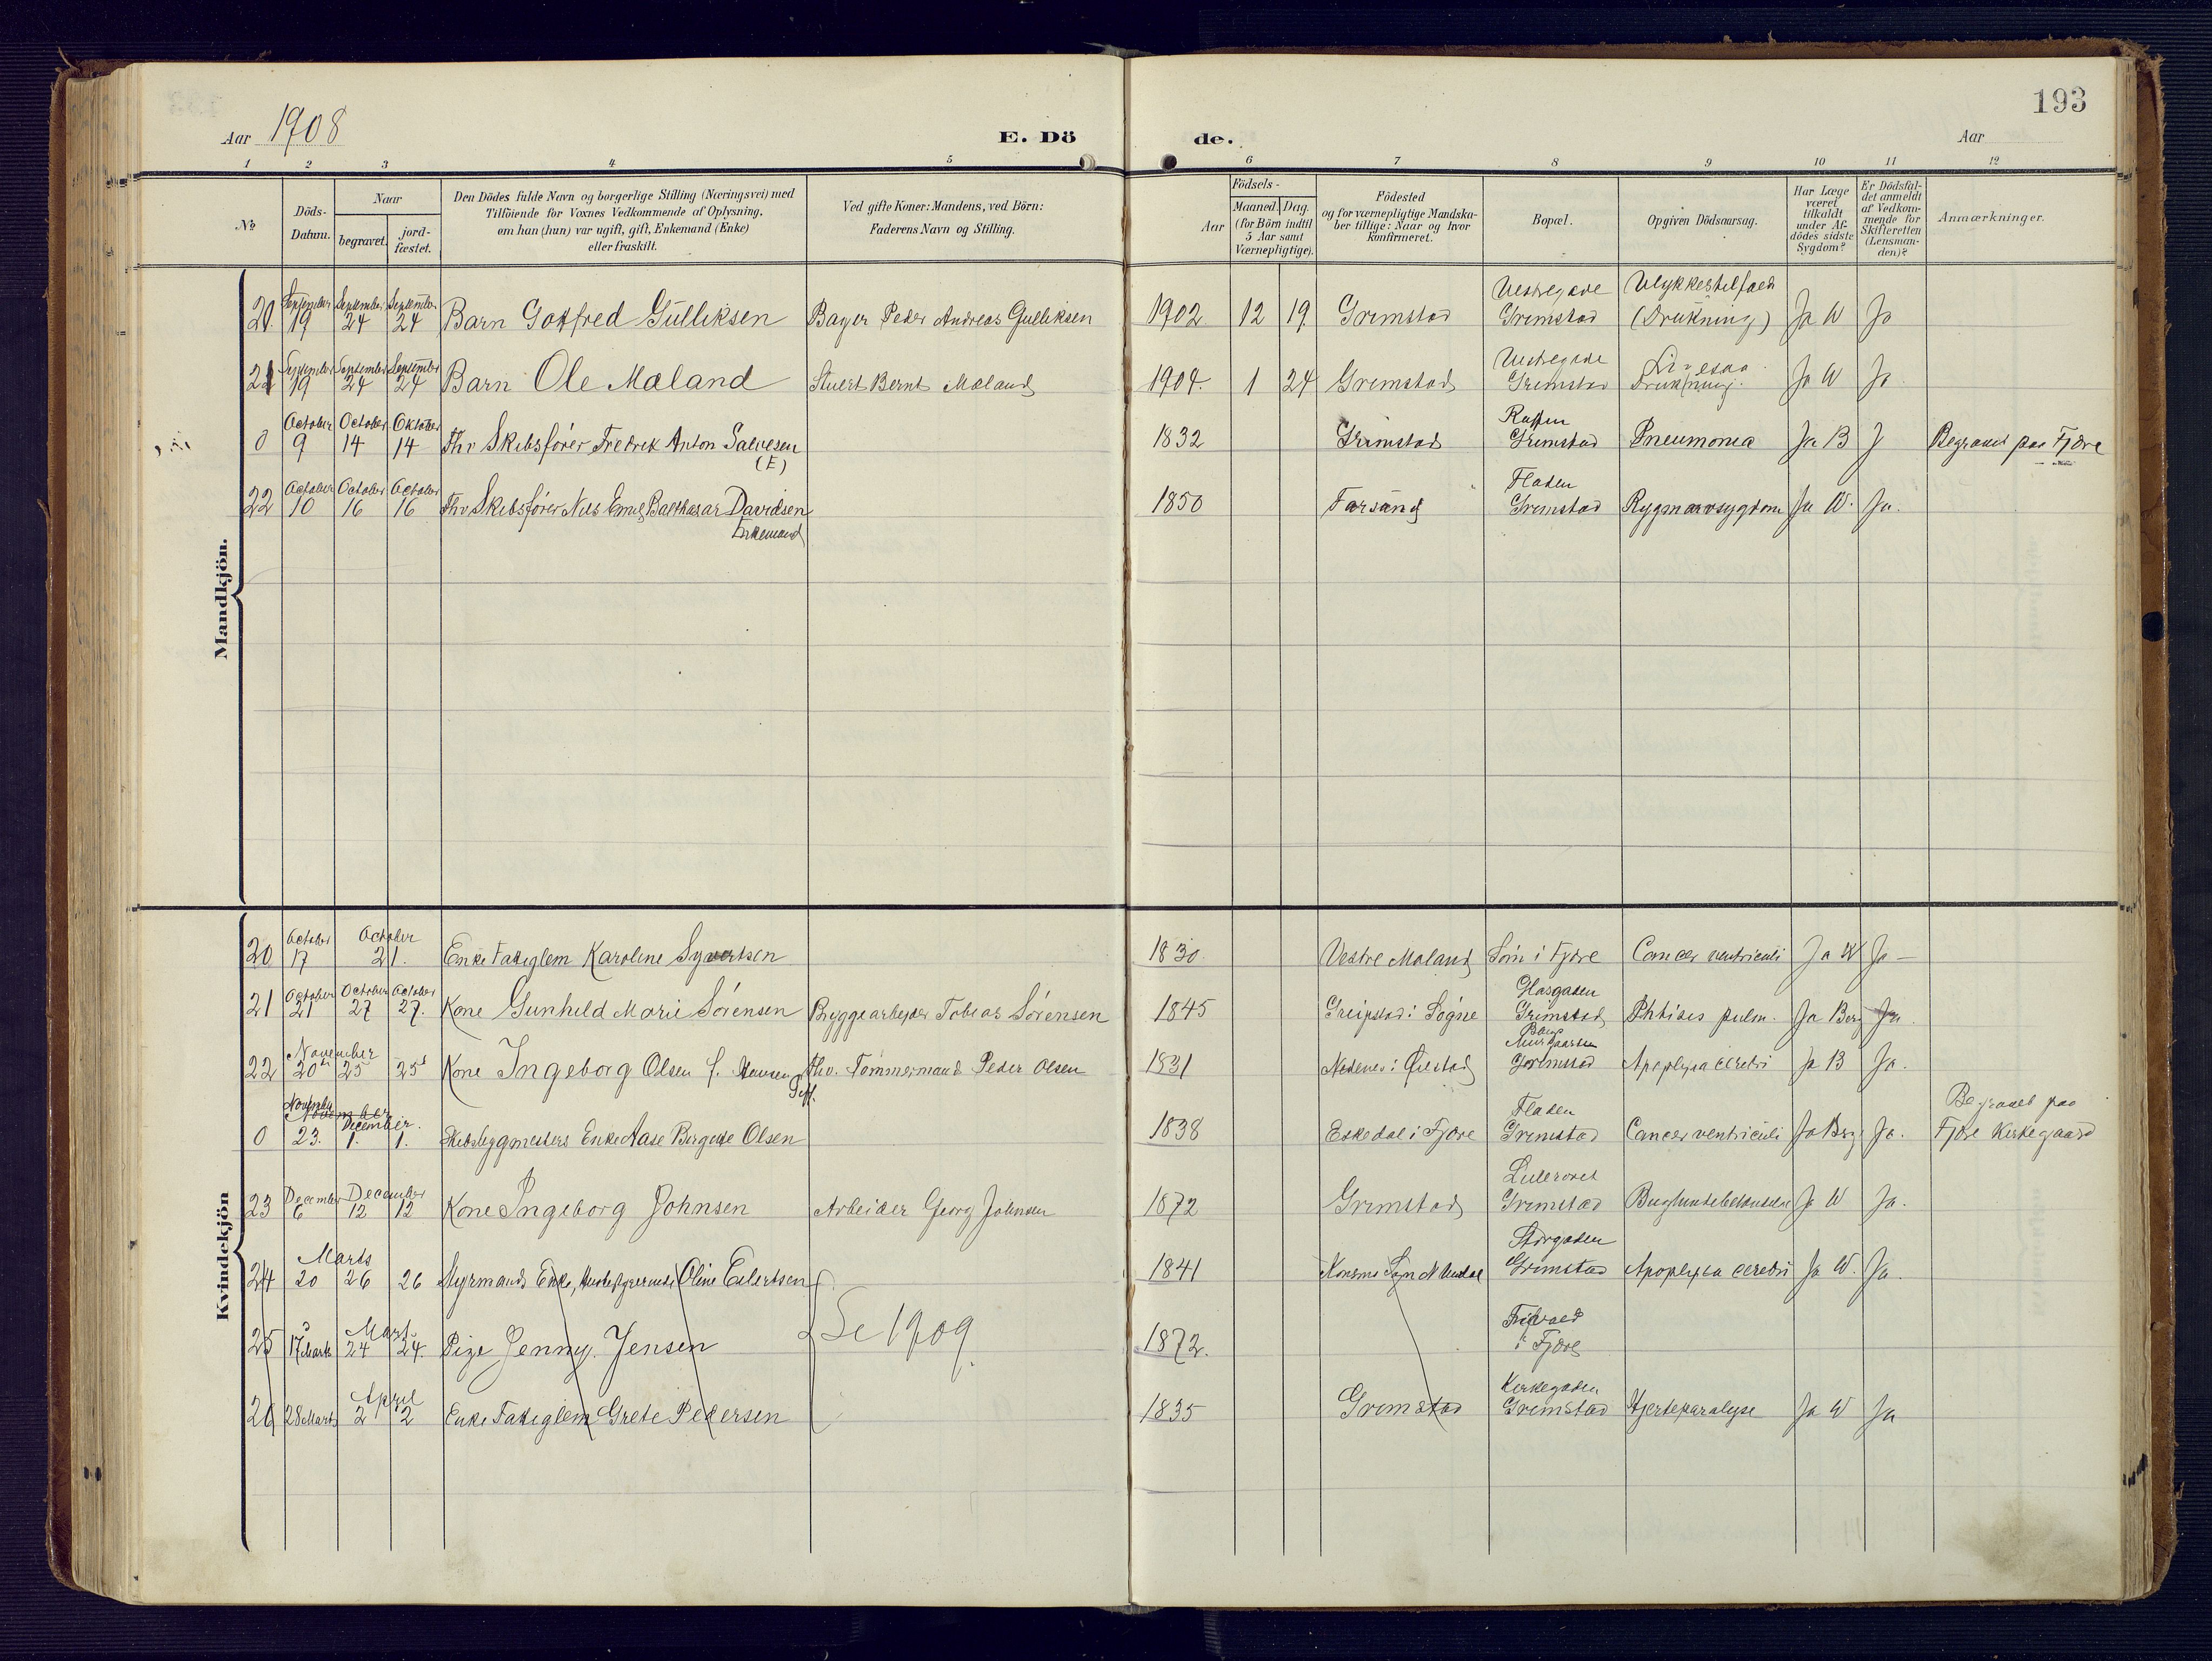 193
Aar 1908
E. Dö de.
Aar
1 2 3 4 5 6 7 8 9 10 11 12
No
Döds-
Datum.
Naar
begravet.
jord-
fæstet.
Den Dödes fulde Navn og borgerlige Stilling (Næringsvei) med
Tilföiende for Voxnes Vedkommende af Oplysning,
om han (hun) var ugift, gift, Enkemand (Enke)
eller fraskilt.
Ved gifte Koner: Mandens, ved Börn:
Faderens Navn og Stilling.
Födsels-
Aar
Maaned. Dag.
(for Börn indtil
5 Aar samt
Værnepligtige).
Födested
og for værnepligtige Mandska-
ber tillige: Naar og hvor
Konfirmeret.
Bopæl.
Opgiven Dödsaarsag.
Har Læge
været
tilkaldt
under Af-
dödes sidste
Sygdom?
Er Dödsfal-
det anmeldt
af Vedkom-
mende for
Skifteretten
(Lensman-
den)?
Anmærkninger.
Mandkjön.
September September September Vestregade Ulykkestilfæld
20. 19 24 24 Barn Gotfred Gulliksen Bager Peder Andreas Gulliksen 1902 12 19. Grimstad Grimstad (Drukning) Ja W Ja
September September September Vestregade
21 19 24 24 Barn Ole Maland Stuert Bernt Maland 1904. 1 24 Grimstad Grimstad Drukning. Ja W Ja
October October Oktober
0 9 14 14 Fhv Skibsfører Fredrik Anton Salvesen 1832 Grimstad Grimstad Pneumonia Ja B J Begravet paa Fjære
(E)
October October October Fladen
22 10 16 16 Fhv Skibsfører Nils Emil Balthasar Davidsen 1850 Farsund Grimstad Rygmarvsygdom Ja W. Ja.
Enkemand
Kvindekjön
October October
20 17 21. Enke Fattiglem Karoline Syvertsen 1830. Vestre Moland Søm i Fjære Cancer ventriculi Ja W Ja
October October October
21 21 27 27. Kone Gunhild Marie Sørensen Bryggearbejder Tobias Sørensen 1845 Greipstad i Søgne Grimstad Phtisis pulm. Ja Berg Ja.
November
22 20 25 25 Kone Ingeborg Olsen f. Hansen Fhv. Tømmermand Peder Olsen 1831 Nedenes i Øiestad Grimstad Apoplexia cerebri Ja B Ja.
Gift.
November December. Fladen Begravet paa
0 23. 1. 1. Skibsbygmesters Enke Aase Bergete Olsen 1838 Eskedal i Fjære Grimstad Cancer ventriculi Ja Brg Ja. Fjære Kirkegaard
December December
23 6 12 12 Kone Ingeborg Johnsen Arbeider Georg Johnsen 1872 Grimstad Grimstad Ja W Ja.
Marts Storgaden
24 20 26 26 Styrmands Enke, Oline Eilertsen 1841 Grimstad Apoplexia cerebri Ja W. Ja.
Marts
25 17 Marts 24 24. Pige Jenny Jensen Se 1909 1872. i Fjære
April Kirkegaden
26 28 Marts 2 2 Enke Fattiglem Grete Pedersen 1835 Grimstad Grimstad Hjerteparalyse Ja W Ja